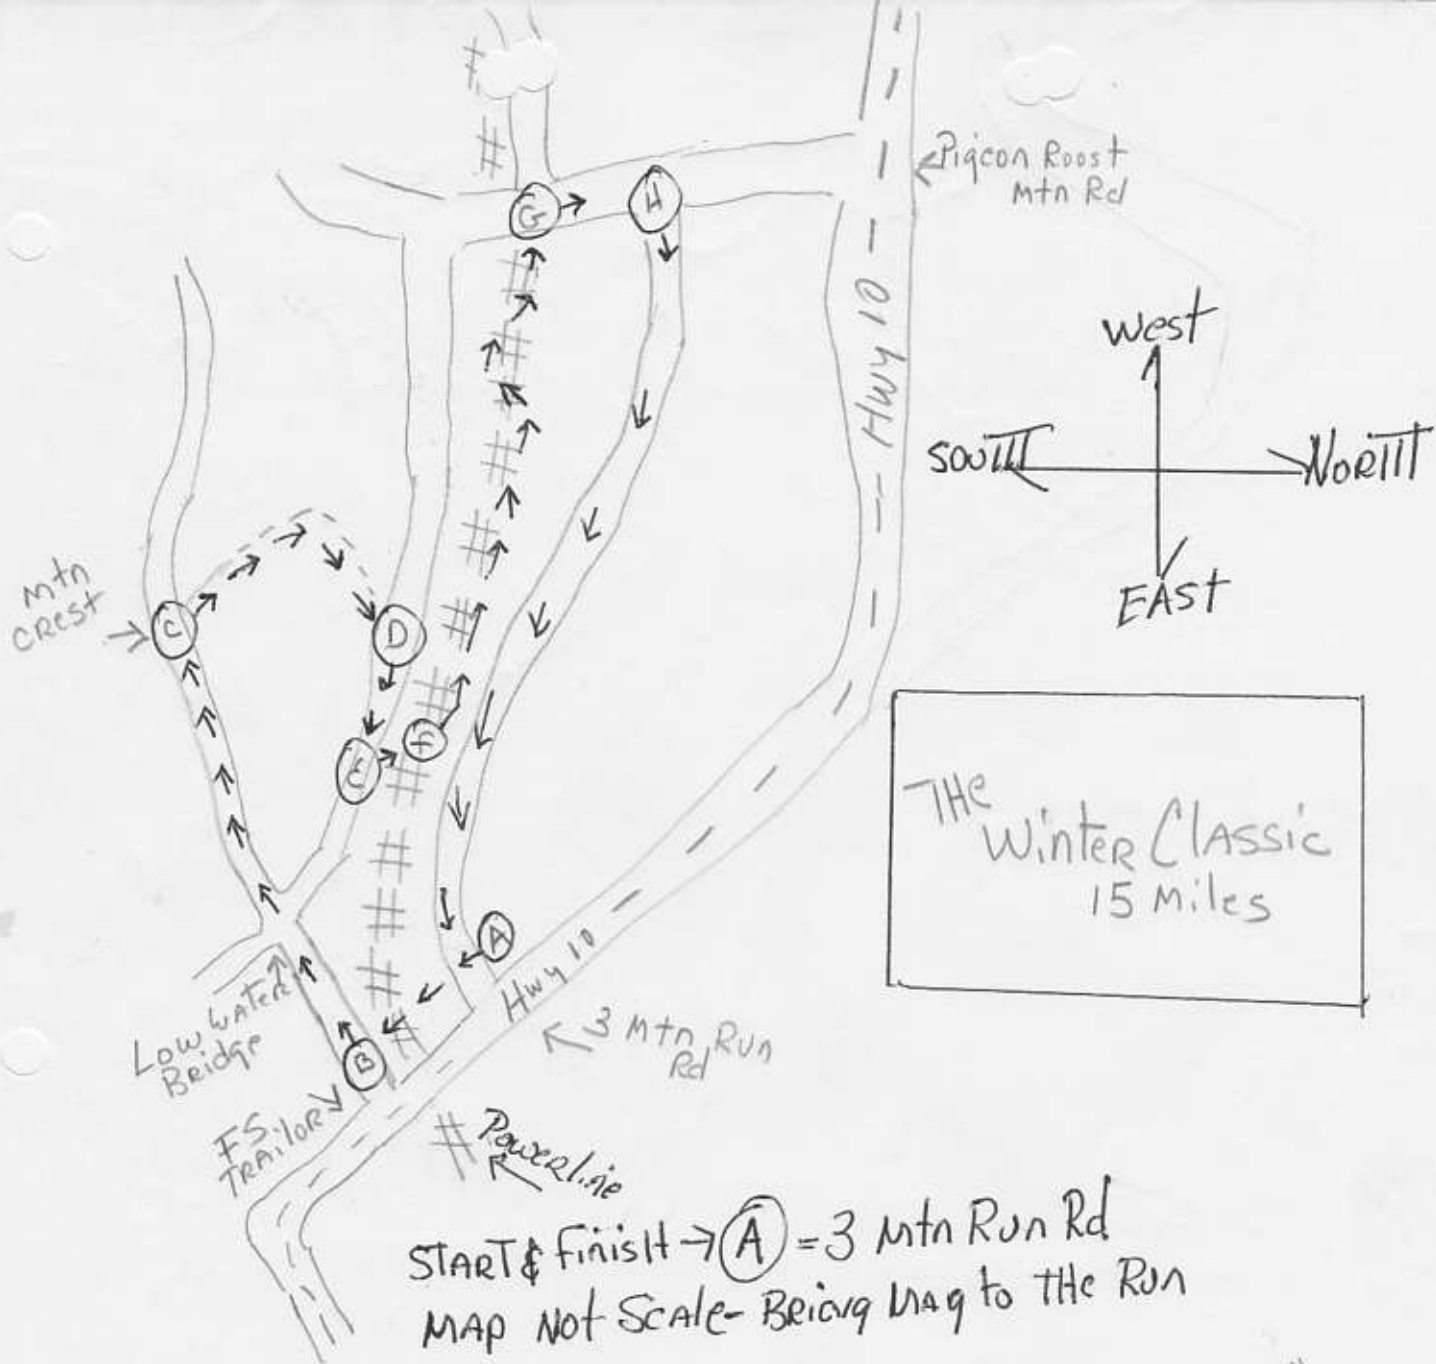 G
H
Pigeon Roost
Mtn Rd
Hwy 10
West
South
North
East
Mtn
Crest
C
D
E
F
The
Winter Classic
15 Miles
A
Hwy 10
Low Water
Bridge
B
3 Mtn Run
Rd
FS.
Trailor
Powerline
Start & Finish → A = 3 Mtn Run Rd
Map Not Scale - Bring Map to The Run